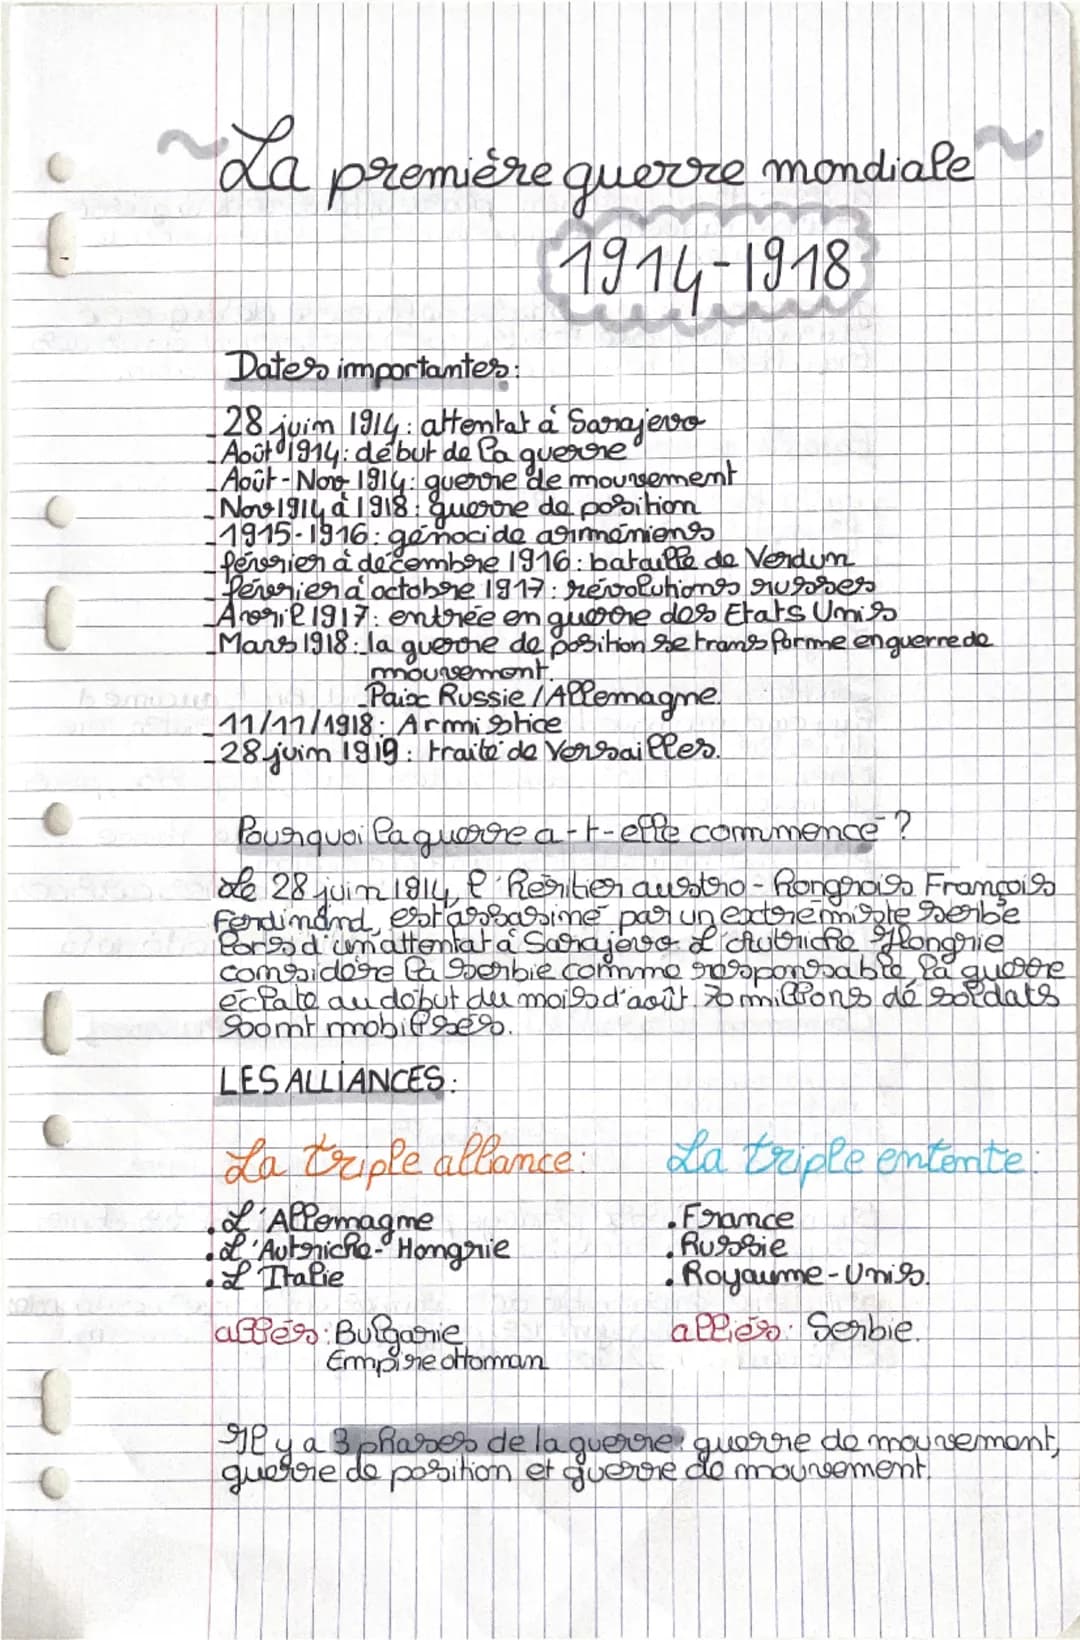 La première guerre mondiale
1914-1918
Dates importantes:
28 juin 1914: attentat à Sarajevo
Août 1914: début de la guerre
Août-Nov 1914: guerre de mouvement
Nov 1914 à 1918: guerre de position
1915-1916: génocide arméniens
février à décembre 1916: bataille de Verdun
février à octobre 1917: révolutions russes
Avril 1917: entrée en guerre des Etats Unis
Mars 1918: la guerre de position se transforme en guerre de
mouvement.
Paix Russie / Allemagne.
11/11/1918: Armistice
28 juin 1919: traité de Versailles.
Pourquoi la guerre a-t-elle commencé ?
Le 28 juin 1914, l'héritier austro-hongrois François
Ferdinand, est assassiné par un extrémiste serbe
lors d'un attentat à Sarajevo. L'Autriche Hongrie
considère la Serbie comme responsable la guerre
éclate au début du mois d'août. 70 millions de soldats
sont mobilisés.
LES ALLIANCES:
La triple alliance: La triple entente:
. L'Allemagne . France
. L'Autriche-Hongrie . Russie
. L'Italie . Royaume-Unis.
alliés: Bulgarie alliés: Serbie.
Empire ottoman
Il y a 3 phases de la guerre: guerre de mouvement,
guerre de position et guerre de mouvement.